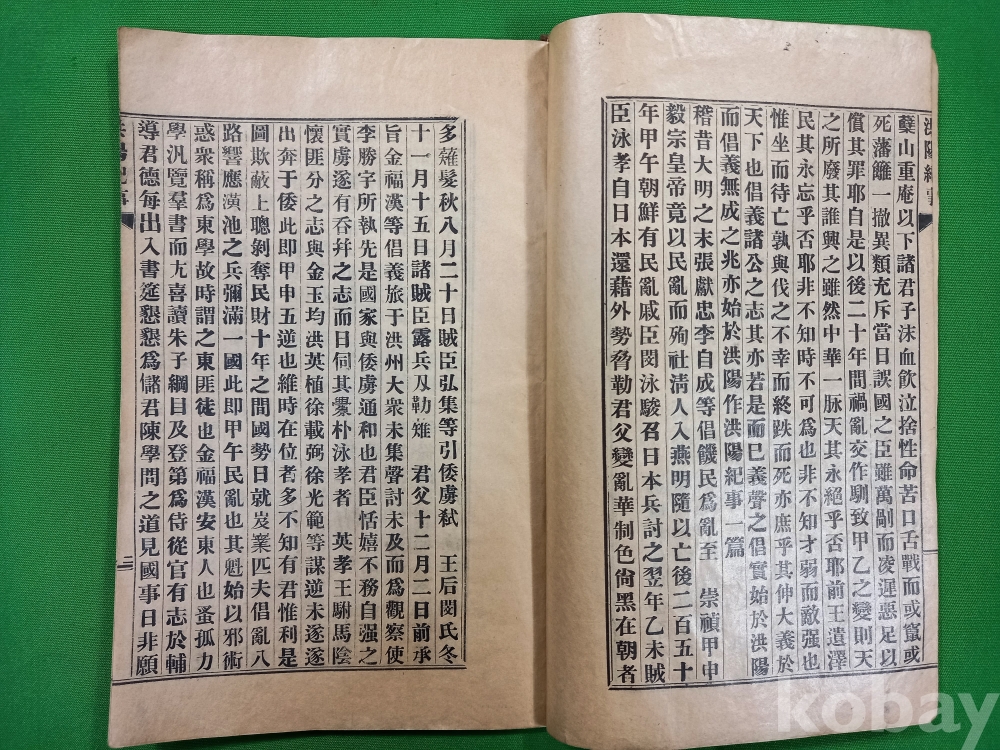 洪陽紀事
蘖山重庵以下諸君子沫血飮泣捨性命苦口舌戰而或竄或
死藩籬一撤異類充斥當日誤國之臣雖萬剮而凌遲惡足以
償其罪耶自是以後二十年間禍亂交作馴致甲乙之變則天
之所廢其誰興之雖然中華一脉天其永絕乎否耶前王遺澤
民其永忘乎否耶非不知時不可爲也非不知才弱而敵强也
惟坐而待亡孰與伐之不幸而終跌而死亦庶乎其伸大義於
天下也倡義諸公之志其亦若是而已義聲之倡實始於洪陽
而倡義無成之兆亦始於洪陽作洪陽紀事一篇
稽昔大明之末張獻忠李自成等倡饑民爲亂至 崇禎甲申
毅宗皇帝竟以民亂而殉社淸人入燕明隨以亡後二百五十
年甲午朝鮮有民亂戚臣閔泳駿召日本兵討之翌年乙未賊
臣泳孝自日本還藉外勢脅勒君父變亂華制色尙黑在朝者
多薙髮秋八月二十日賊臣弘集等引倭虜弑 王后閔氏冬
十一月十五日諸賊臣露兵刃勒雉 君父十二月二日前承
旨金福漢等倡義旅于洪州大衆未集聲討未及而爲觀察使
李勝宇所執先是國家與倭虜通和也君臣恬嬉不務自强之
實虜遂有呑幷之志而日伺其釁朴泳孝者 英孝王駙馬陰
懷匪分之志與金玉均洪英植徐載弼徐光範等謀逆未遂遂
出奔于倭此即甲申五逆也維時在位者多不知有君惟利是
圖欺蔽上聰剝奪民財十年之間國勢日就岌嶪匹夫倡亂八
路響應潢池之兵彌滿一國此即甲午民亂也其魁始以邪術
惑衆稱爲東學故時謂之東匪徒也金福漢安東人也蚤孤力
學汎覽羣書而尤喜讀朱子綱目及登第爲侍從官有志於輔
導君德每出入書筵懇懇爲儲君陳學問之道見國事日非願
洪陽紀事
二
kobay